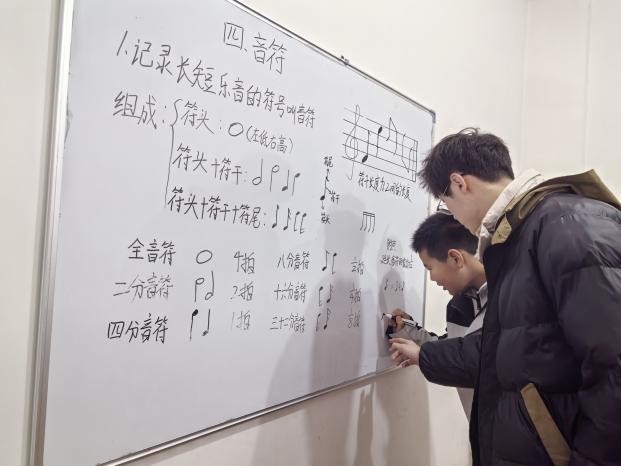 四、音符
1.记录长短乐音的符号叫音符
组成：符头：(左低右高)
符头+符干：
符头+符干+符尾：
符尾
符干
符头
全音符 4拍 八分音符
二分音符 2拍 十六分音符
四分音符 1拍 三十二分音符